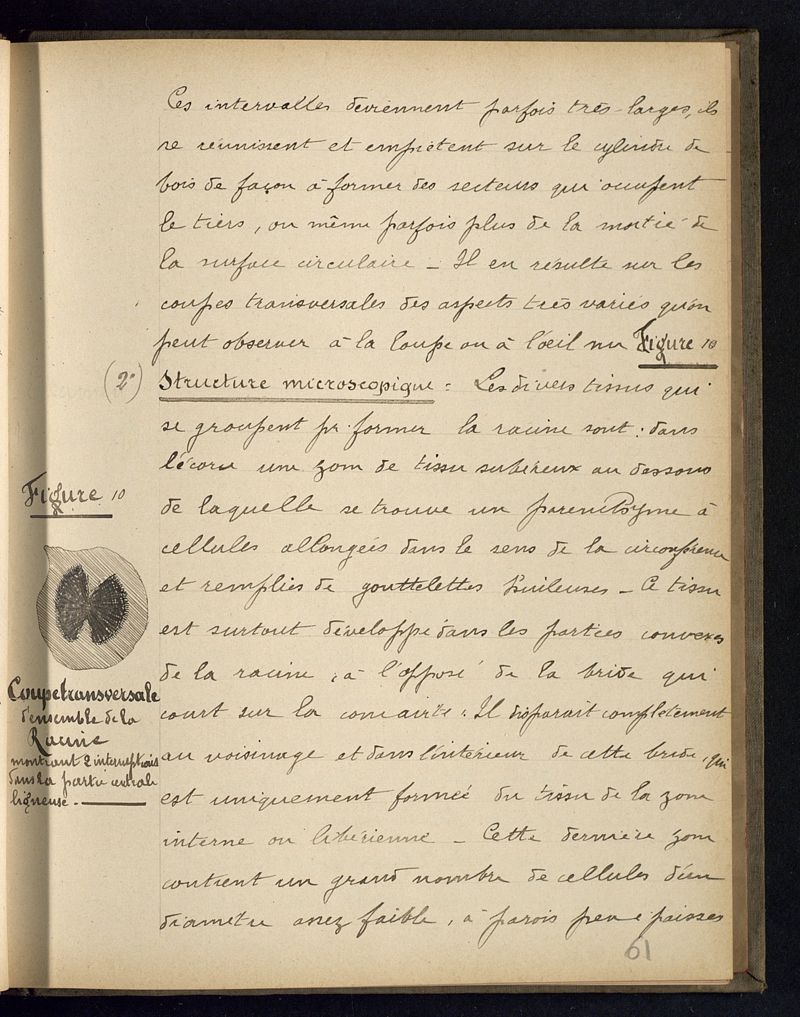 Ces intervalles deviennent parfois très larges, ils
se réunissent et empiètent sur le cylindre de
bois de façon à former des secteurs qui occupent
le tiers, ou même parfois plus de la moitié de
la surface circulaire _ Il en résulte sur les
coupes transversales des aspects très variés qu'on
peut observer à la loupe ou à l'œil nu Figure 10
(2°) Structure microscopique : Les divers tissus qui
se groupent pr. former la racine sont : dans
l'écorce une zone de tissu subéreux au dessous
de laquelle se trouve un parenchyme à
cellules allongées dans le sens de la circonférence
et remplies de gouttelettes huileuses _ Ce tissu
est surtout développé dans les parties convexes
de la racine, à l'opposé de la bride qui
court sur la concavité : Il disparait complètement
au voisinage et dans l'intérieur de cette bride, qui
est uniquement formée du tissu de la zone
interne ou libérienne _ Cette dernière zone
contient un grand nombre de cellules d'un
diamètre assez faible, à parois peu épaisses
Figure 10
Coupe transversale
d'ensemble de la
Racine
montrant 2 interruptions
dans la partie centrale
ligneuse.
61